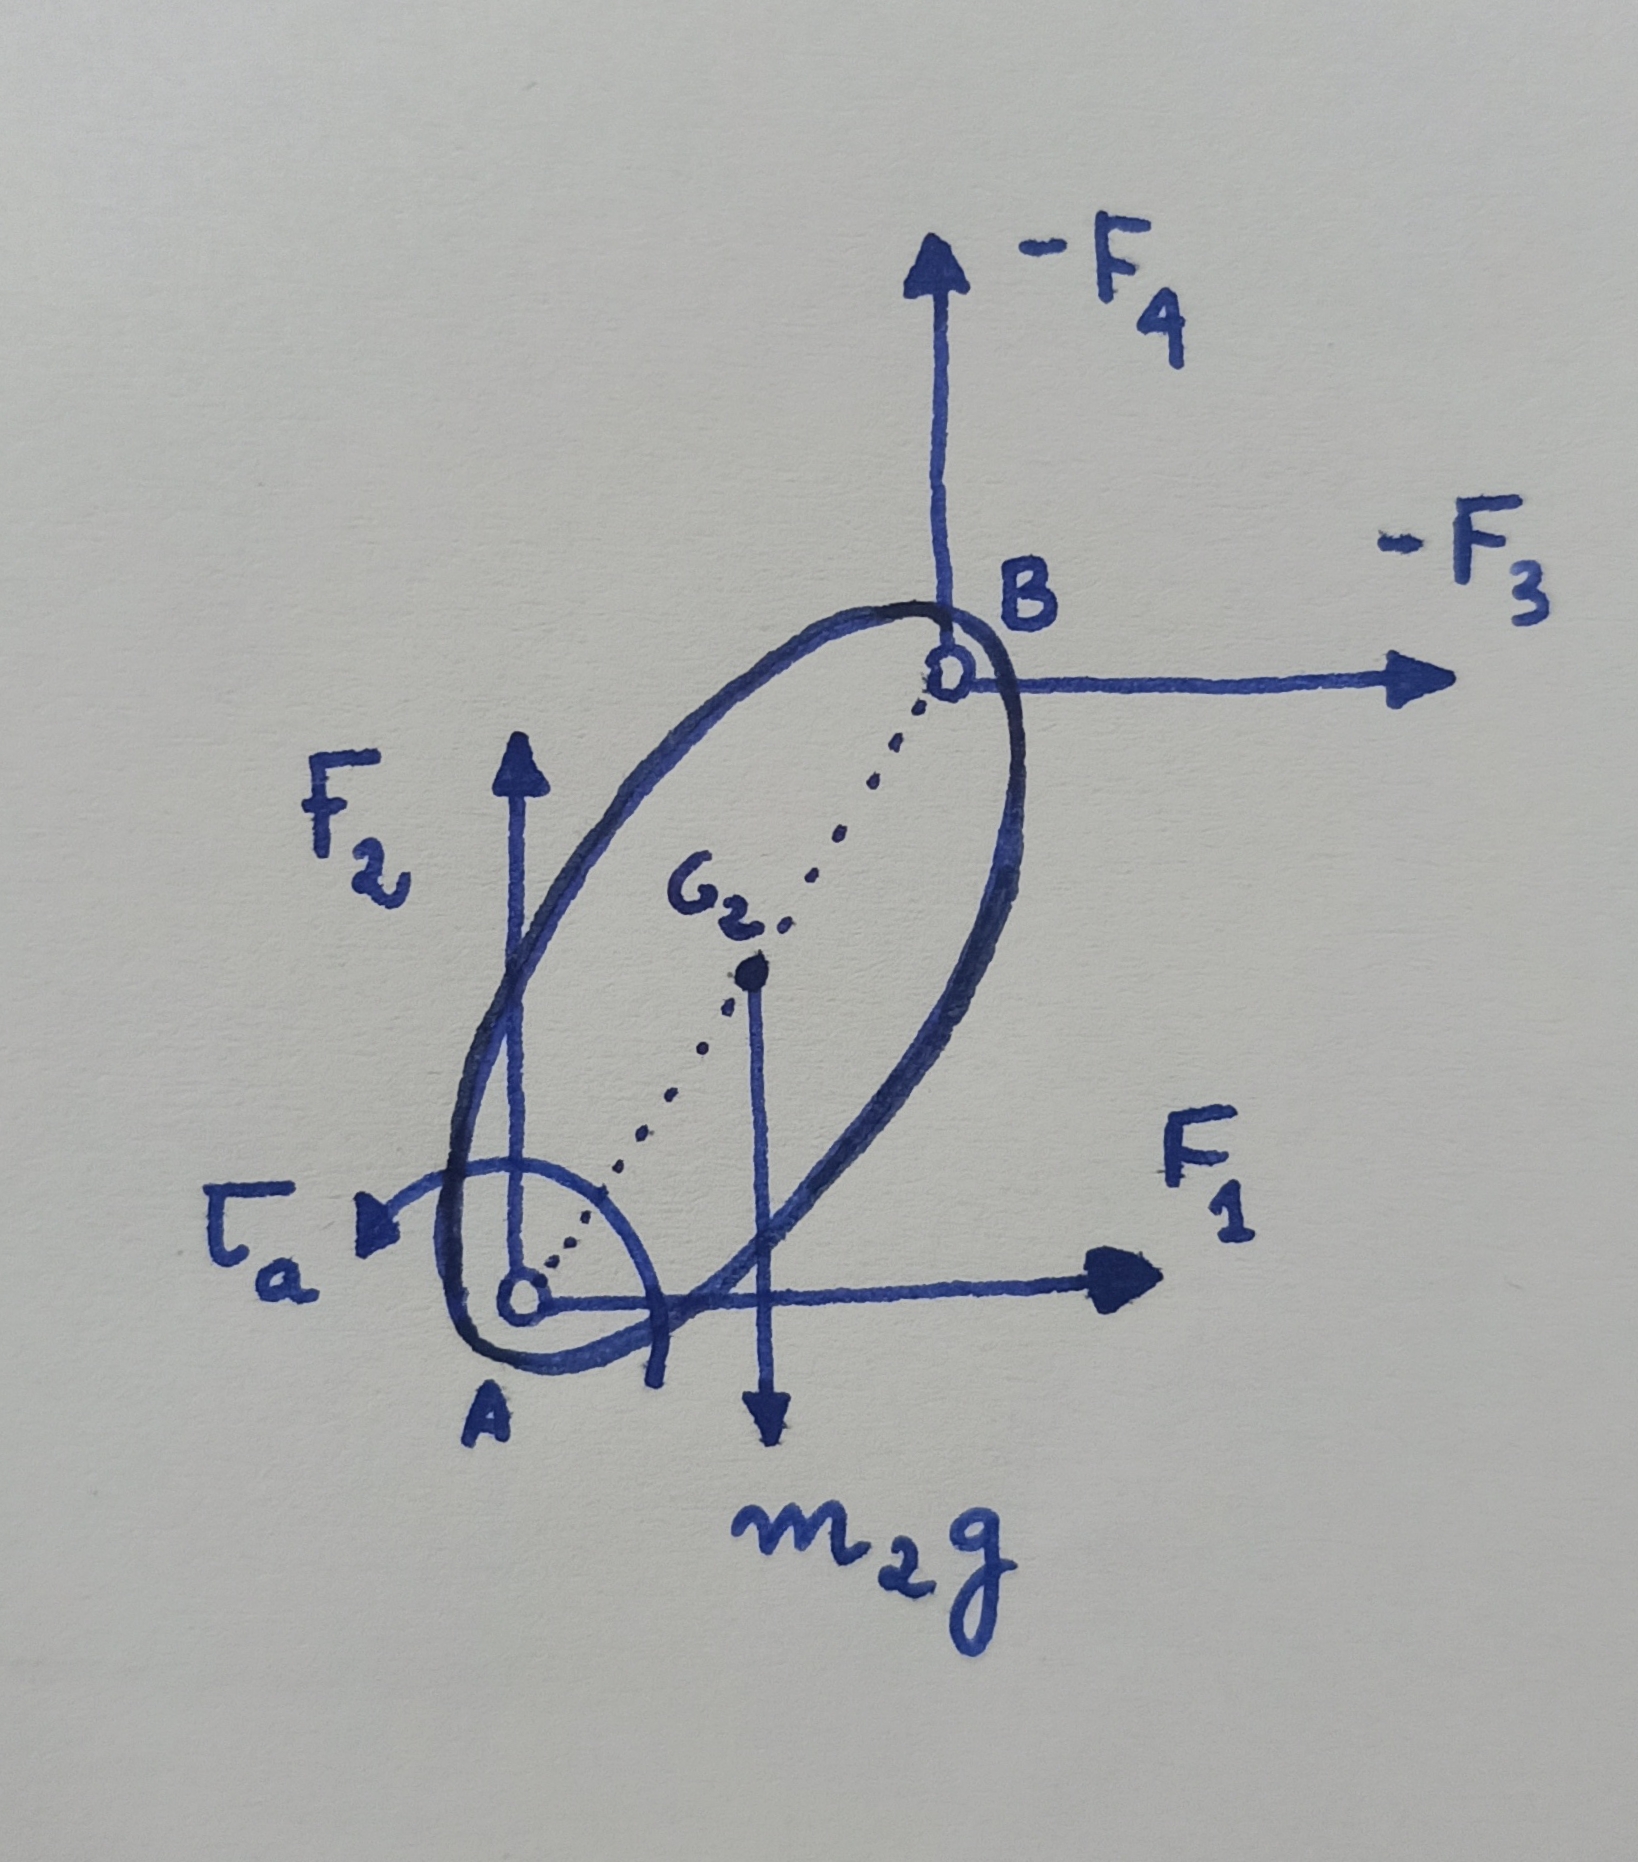 -F₄
-F₃
B
F₂
G₂
F₁
τₐ
A
m₂g